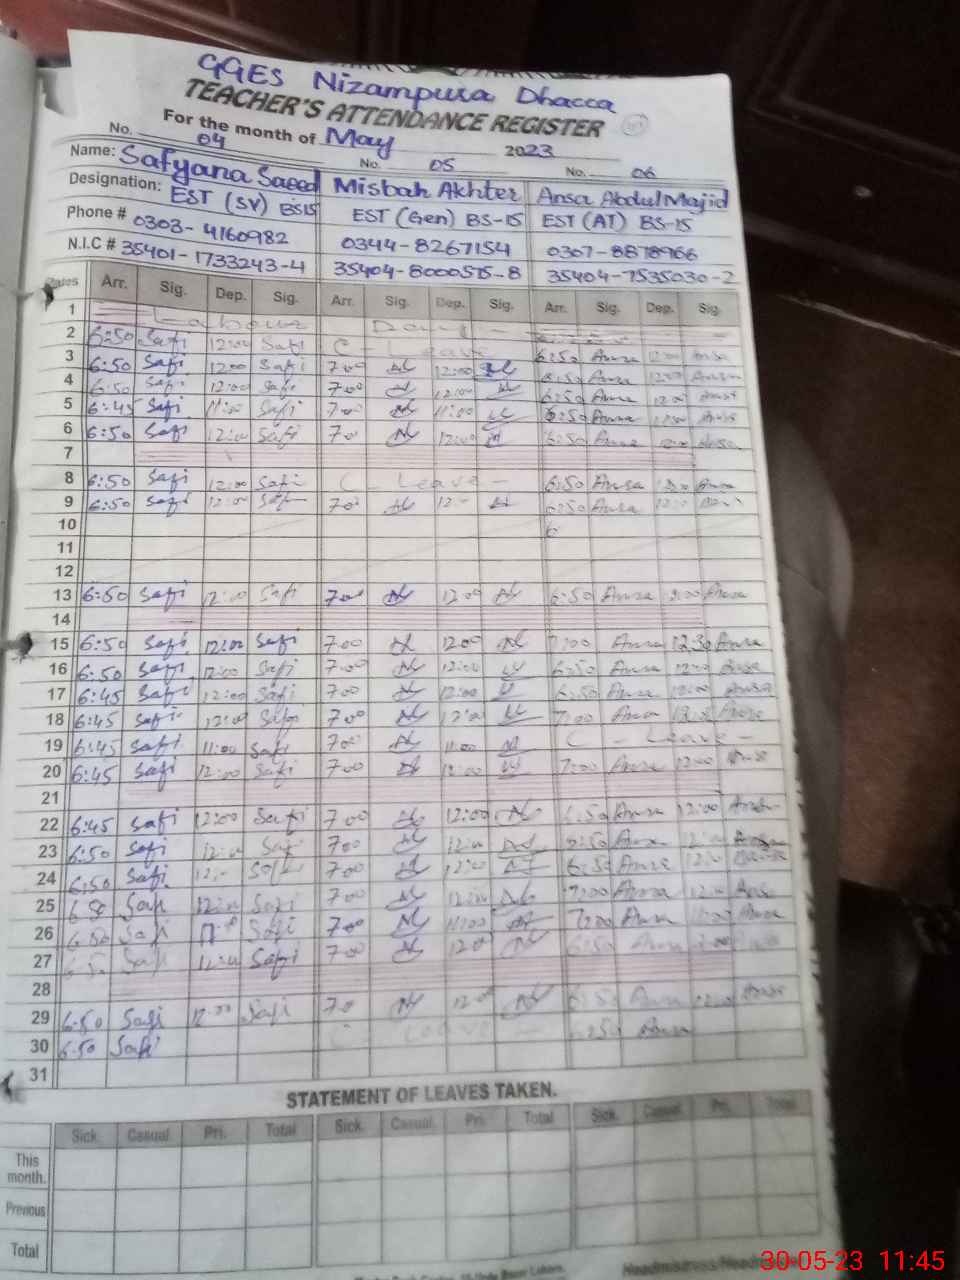 GGES Nizampura Dhacca
TEACHER'S ATTENDANCE REGISTER
For the month of May 2023
No. 04 No. 05 No. 06
Name: Safyana Saeed Misbah Akhter Ansa Abdul Majid
Designation: EST (SV) BS15 EST (Gen) BS-15 EST (AT) BS-15
Phone # 0303-4160982 0344-8267154 0307-8878966
N.I.C # 35401-1733243-4 35404-8000575-8 35404-7535030-2
Dates Arr. Sig. Dep. Sig. Arr. Sig. Dep. Sig. Arr. Sig. Dep. Sig.
1 Labour Day
2 6:50 Safi 12:00 Safi C - Leave 6:50 Ansa 12:00 Ansa
3 6:50 Safi 12:00 Safi 7:00 12:00 6:50 Ansa 12:00 Ansa
4 6:50 Safi 12:00 Safi 7:00 12:00 6:50 Ansa 12:00 Ansa
5 6:45 Safi 11:00 Safi 7:00 11:00 6:50 Ansa Ansa
6 6:50 Safi 12:00 Safi 7:00 12:00 6:50 Ansa 12:00 Ansa
7
8 6:50 Safi 12:00 Safi C - Leave - 6:50 Ansa Ansa
9 6:50 Safi 12:00 Safi 7:00 12:00 6:50 Ansa 12:00 Ansa
10 6
11
12
13 6:50 Safi 12:00 Safi 7:00 12:00 6:50 Ansa 12:00 Ansa
14
15 6:50 Safi 12:00 Safi 7:00 12:00 7:00 Ansa 12:30 Ansa
16 6:50 Safi 12:00 Safi 7:00 12:00 6:50 Ansa 12:00 Ansa
17 6:45 Safi 12:00 Safi 7:00 12:00 6:50 Ansa 12:00 Ansa
18 6:45 Safi 12:00 Safi 7:00 12:00 7:00 Ansa Ansa
19 6:45 Safi 11:00 Safi 7:00 11:00 C - Leave -
20 6:45 Safi 12:00 Safi 7:00 12:00 7:00 Ansa 12:00 Ansa
21
22 6:45 Safi 12:00 Safi 7:00 12:00 6:50 Ansa 12:00 Ansa
23 6:50 Safi 12:00 Safi 7:00 12:00 6:50 Ansa 12:00 Ansa
24 6:50 Safi Safi 7:00 12:00 6:50 Ansa 12:00
25 Safi 12:00 Safi 7:00 12:00 7:00 Ansa 12:00 Ansa
26 6:50 Safi Safi 7:00 11:00 7:00 Ansa 11:00 Ansa
27 Safi 12:00 Safi 7:00 12:0 6:50 Ansa
28
29 6:50 Safi 12:00 Safi 7:0 12:0 6:50 Ansa 12:00 Ansa
30 6:50 Safi C - Leave - 6:50 Ansa
31
STATEMENT OF LEAVES TAKEN.
Sick. Casual. Pri. Total Sick. Casual. Pri. Total Sick. Casual. Pri. Total
This month.
Previous
Total
30-05-23 11:45